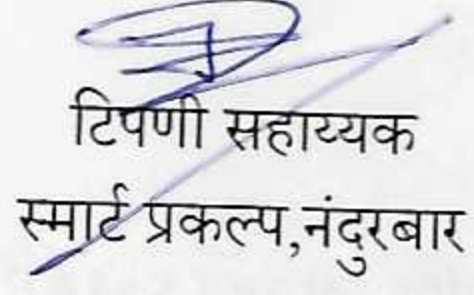 टिपणी सहाय्यक
स्मार्ट प्रकल्प,नंदुरबार